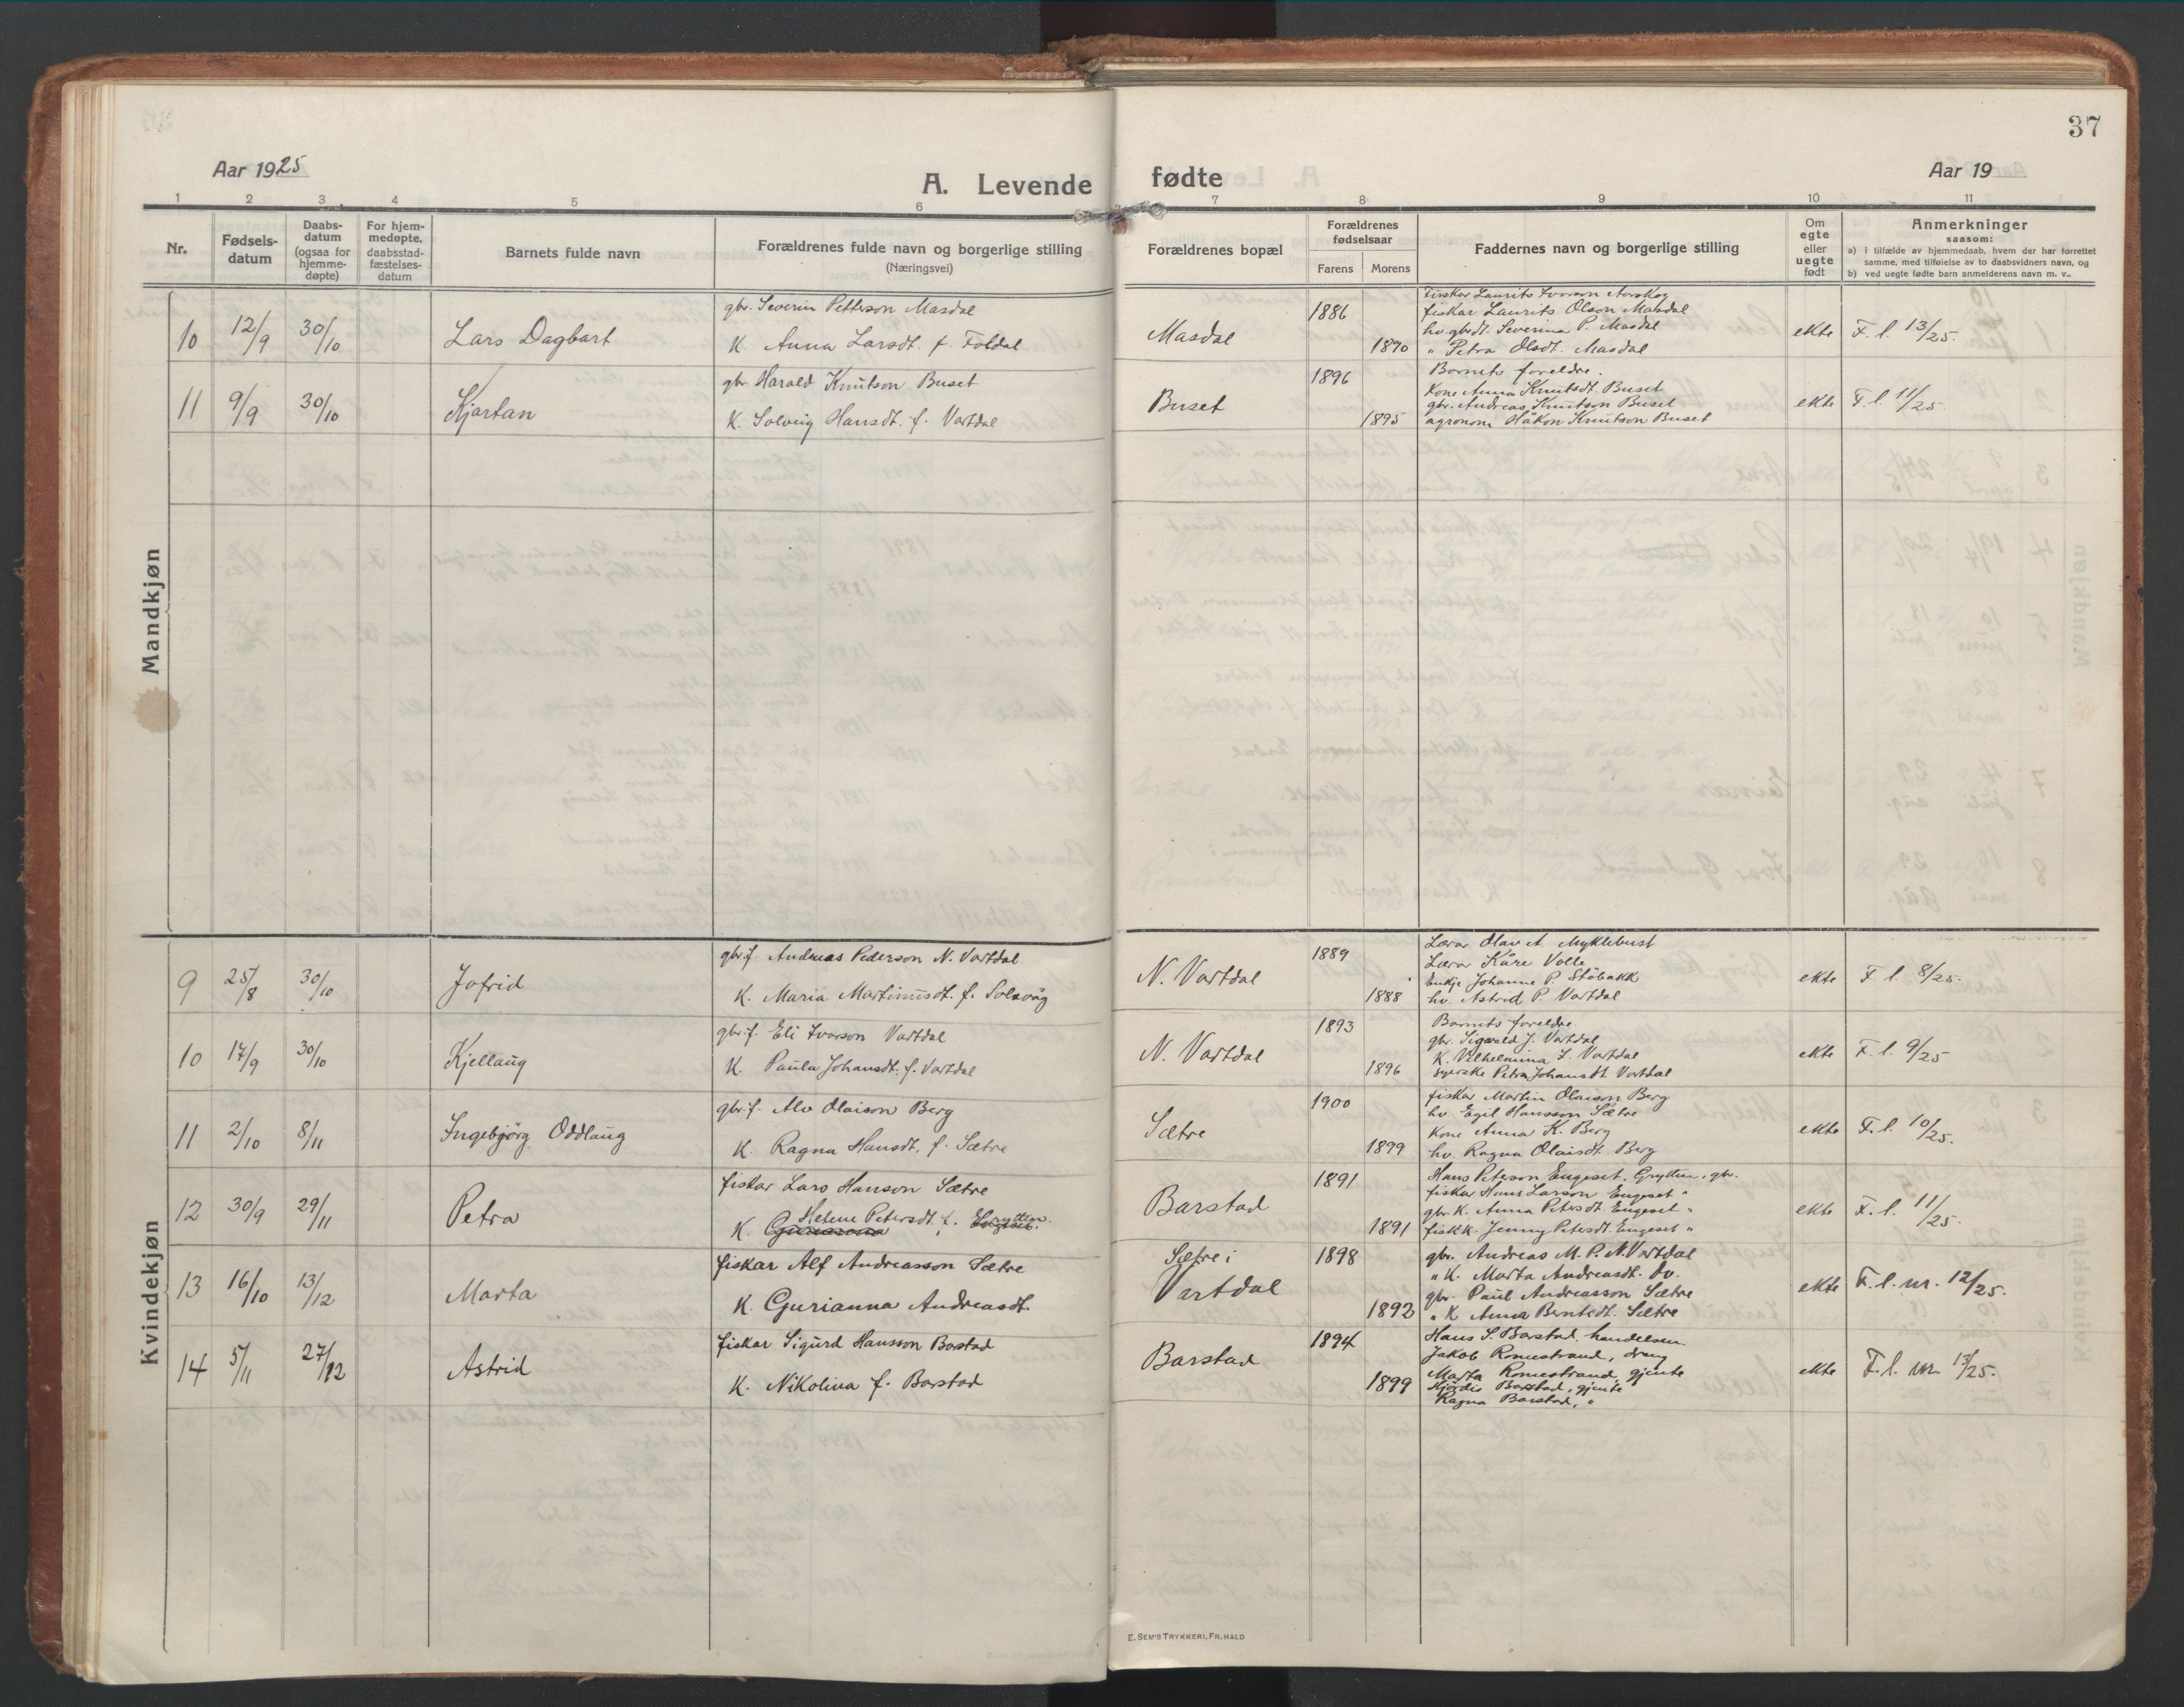 37
Aar 1925
A. Levende fødte
Aar 19
1 2 3 4 5 6 7 8 9 10 11
Nr.
Fødsels-
datum
Daabs-
datum
(ogsaa for
hjemme-
døpte)
For hjem-
medøpte,
daabsstad-
fæstelses-
datum
Barnets fulde navn
Forældrenes fulde navn og borgerlige stilling
(Næringsvei)
Forældrenes bopæl
Forældrenes
fødselsaar
Farens Morens
Faddernes navn og borgerlige stilling
Om
egte
eller
uegte
født
Anmerkninger
saasom:
a) i tilfælde av hjemmedaab, hvem der har forrettet
samme, med tilføielse av to daabsvidners navn, og
b) ved uegte fødte barn anmelderens navn m. v..
Mandkjøn
10 12/9 30/10 Lars Dagbart
gbr. Severin Petterson Masdal
K. Anna Larsdt. f. Foldal
Masdal
1886
1890
Fiskar Laurits Ivarson Aarskog
fiskar Laurits Olson Masdal
hv. gbrdt. Severina P. Masdal
" Petra Olsdt. Masdal
ekte F. l. 13/25.
11 9/9 30/10 Kjartan
gbr. Harald Knutson Buset
K. Solveig Hansdt. f. Vartdal
Buset
1896
1895
Barnets foreldre.
Kone Anna Knutsdt. Buset
gbr. Andreas Knutson Buset
agronom Håkon Knutson Buset
ekte F. l. 11/25.
Kvindekjøn
9 25/8 30/10 Jofrid
gbr.f. Andreas Pederson N. Vartdal
K. Maria Martinusdt. f. Solavåg
N. Vartdal
1889
1888
Lærar Olav A. Myklebust
Lærar Kåre Volle
Enkje Johanne P. Støbakk
hv. Astrid P. Vartdal
ekte F. l. 8/25.
10 17/9 30/10 Kjellaug
gbr.f. Eli Ivarson Vartdal
K. Paula Johansdt. f. Vartdal
N. Vartdal
1893
1896
Barnets foreldre
gbr. Sigvald J. Vartdal
K. Vilhelmina S. Vartdal
syerske Petra Johansdt. Vartdal
ekte F. l. 9/25
11 2/10 8/11 Ingebjørg Oddlaug
gbr.f. Alv Olaison Berg
K. Ragna Hansdt. f. Sætre
Sætre
1900
1899
fiskar Martin Olaison Berg
hv. Egil Hansson Sætre
Kone Anna K. Berg
hv. Ragna Olaisdt. Berg
ekte F. l. 10/25.
12 30/9 29/11 Petra
fiskar Lars Hanson Sætre
K. Helene Petersdt. f. Grytten.
Barstad
1891
1891
Hans Peterson Engeset, Grytten, gbr.
fiskar Hans Larson Engeset "
gbr. K. Anna Petersdt. Engeset "
fisk.k. Jenny Petersdt. Engeset "
ekte F. l. 11/25.
13 16/10 13/12 Marta
fiskar Alf Andreasson Sætre
K. Gurianna Andreasdt.
Sætre i
Vartdal
1898
1892
gbr. Andreas M. P. N. Vartdal
" K. Marta Andreasdt. do.
gbr. Paul Andreasson Sætre
" K. Anna Berntsdt. Sætre
ekte F. l. nr. 12/25.
14 5/11 27/12 Astrid
fiskar Sigurd Hansson Barstad
K. Nikolina f. Barstad
Barstad
1894
1899
Hans S. Barstad, handelsm.
Jakob Romestrand, dreng
Marta Romestrand, gjente
Hjørdis Barstad, gjente
Ragna Barstad, "
ekte F. l. nr. 13/25.
E. SEM'S TRYKKERI, FR.HALD